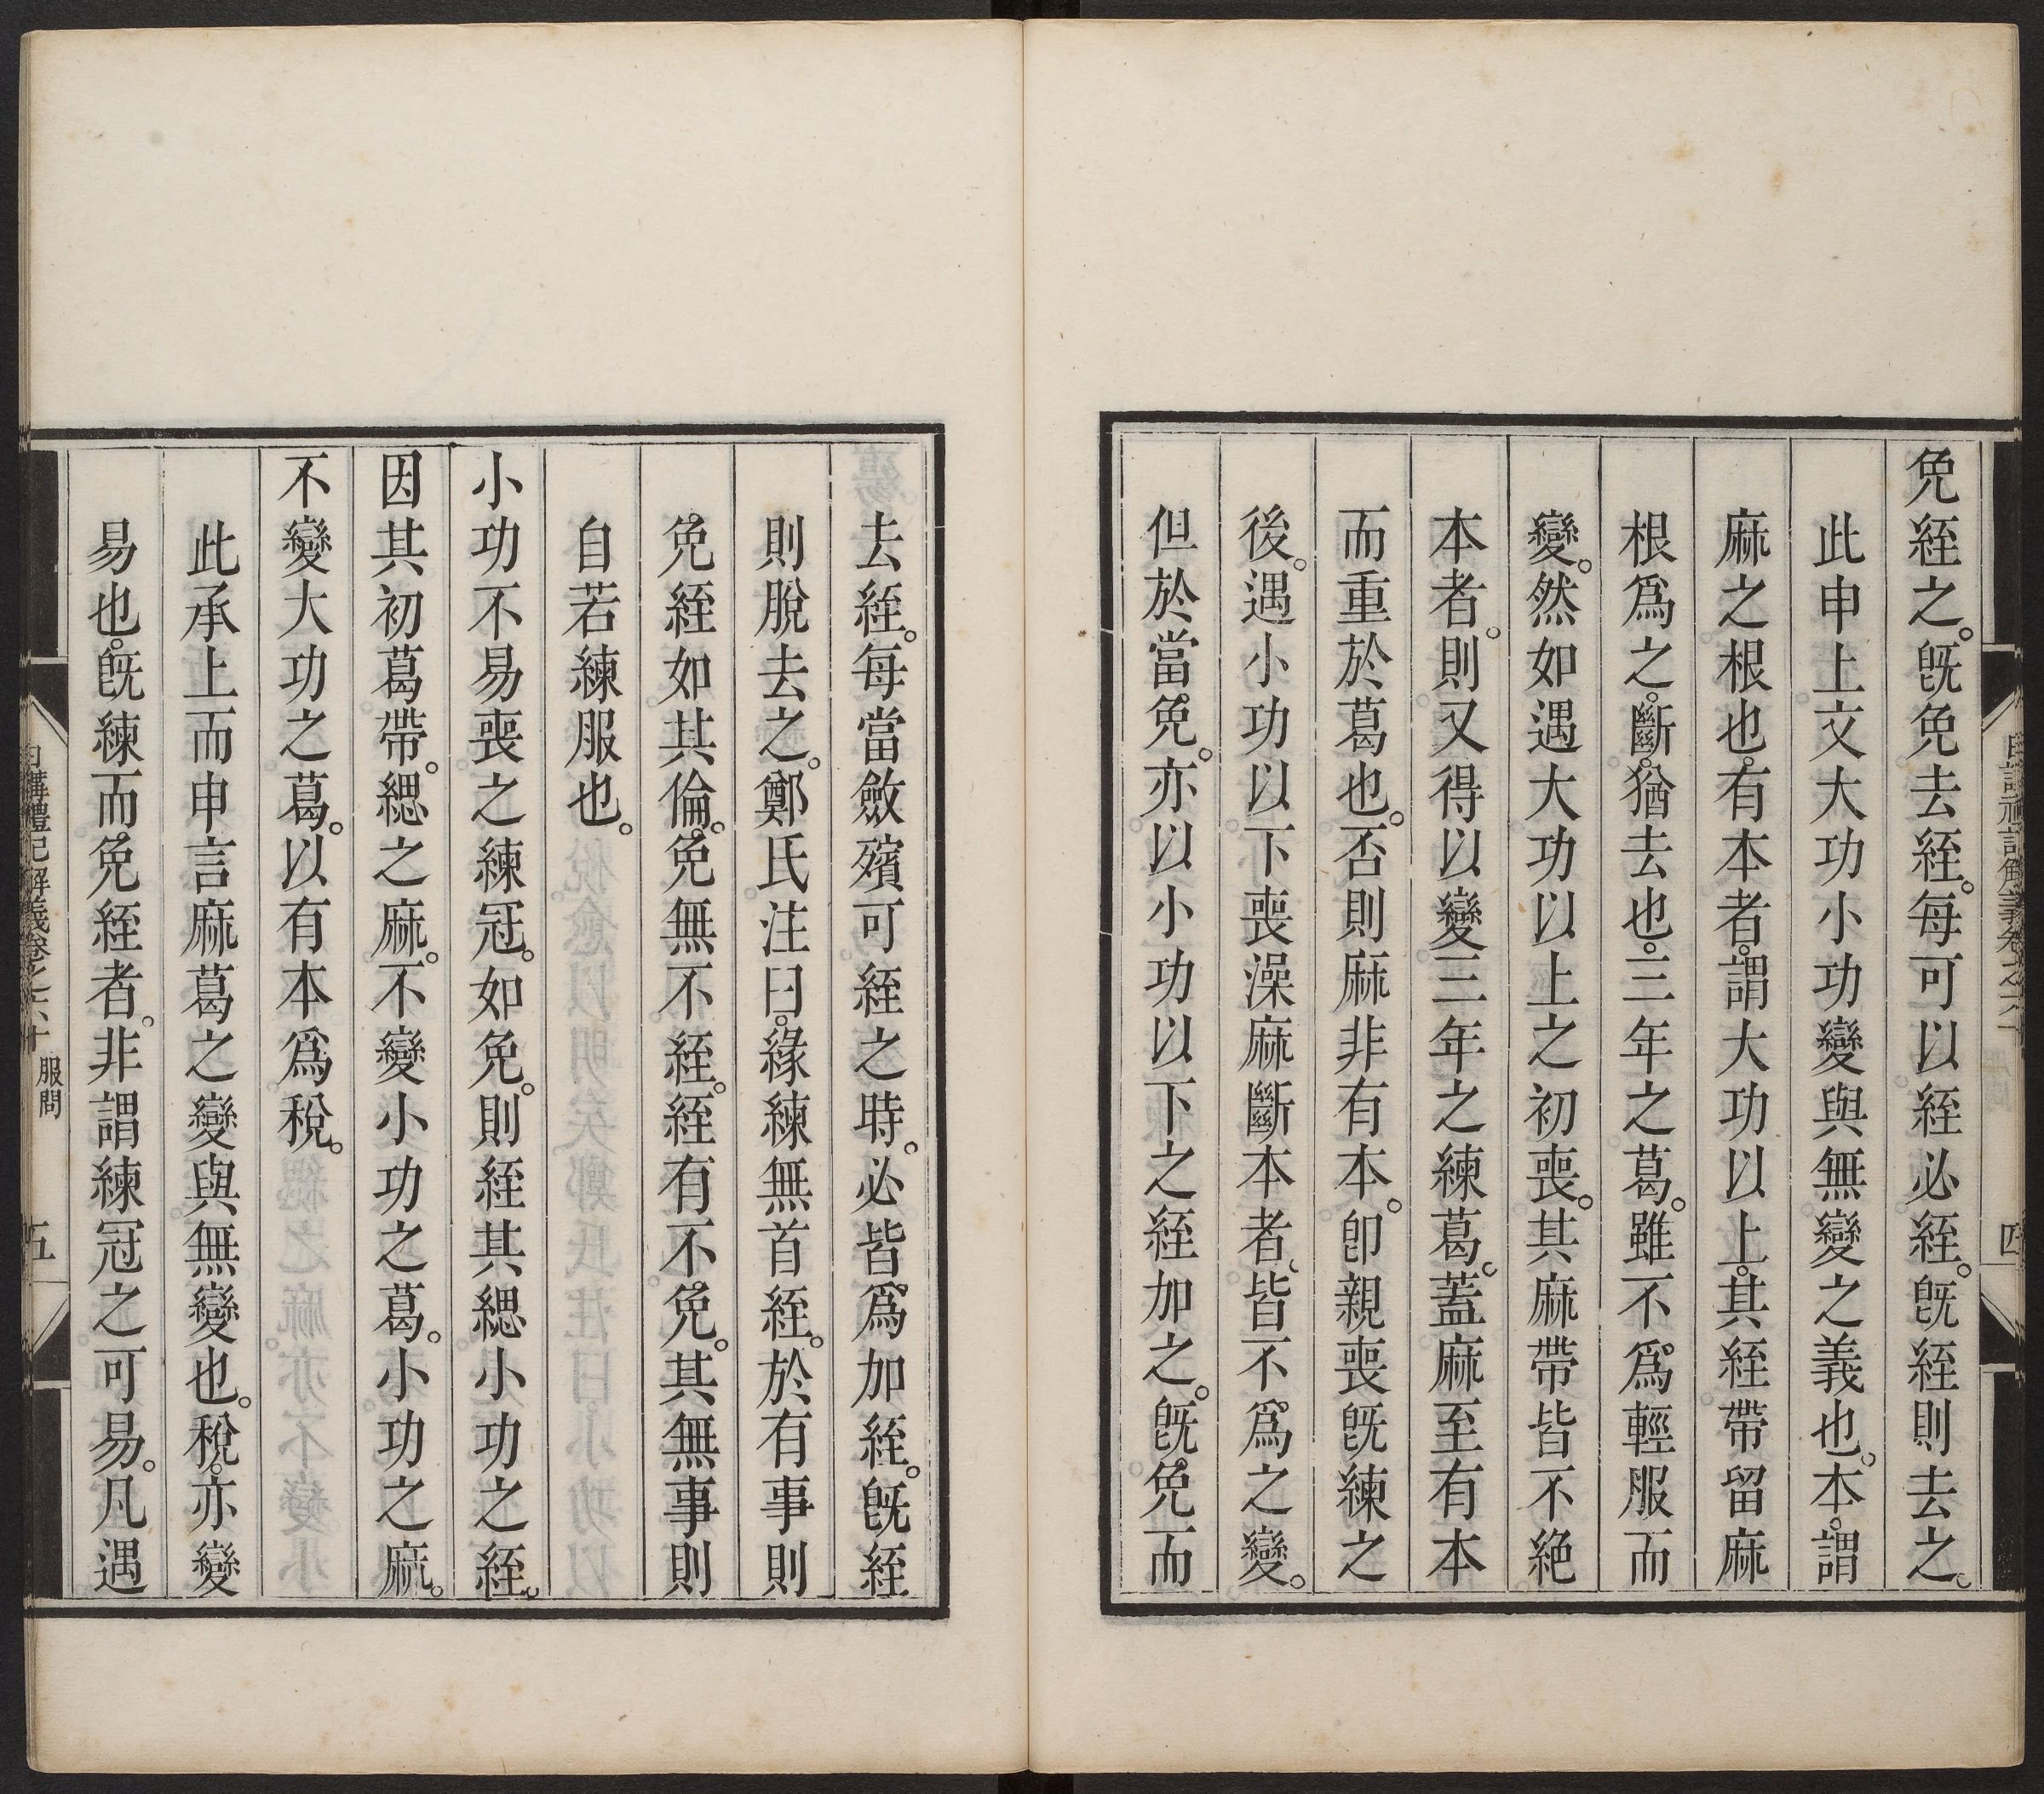 免絰之。旣免去絰。每可以絰必絰。旣絰則去之。
此申上文大功小功變與無變之義也。本。謂
麻之根也。有本者。謂大功以上。其絰帶留麻
根爲之。斷。猶去也。三年之葛。雖不爲輕服而
變。然如遇大功以上之初喪。其麻帶皆不絶
本者。則又得以變三年之練葛。蓋麻至有本
而重於葛也。否則麻非有本。卽親喪旣練之
後。遇小功以下喪澡麻斷本者、皆不爲之變。
但於當免。亦以小功以下之絰加之。旣免而
去絰。每當斂殯可絰之時。必皆爲加絰。旣絰
則脫去之。鄭氏注曰。緣練無首絰。於有事則
免絰如其倫。免無不絰。絰有不免。其無事則
自若練服也。
小功不易喪之練冠。如免。則絰其緦小功之絰。
因其初葛帶。緦之麻。不變小功之葛。小功之麻。
不變大功之葛。以有本爲稅。
此承上而申言麻葛之變與無變也。稅。亦變
易也。旣練而免絰者。非謂練冠之可易。凡遇
日講禮記解義卷之六十 服問 五